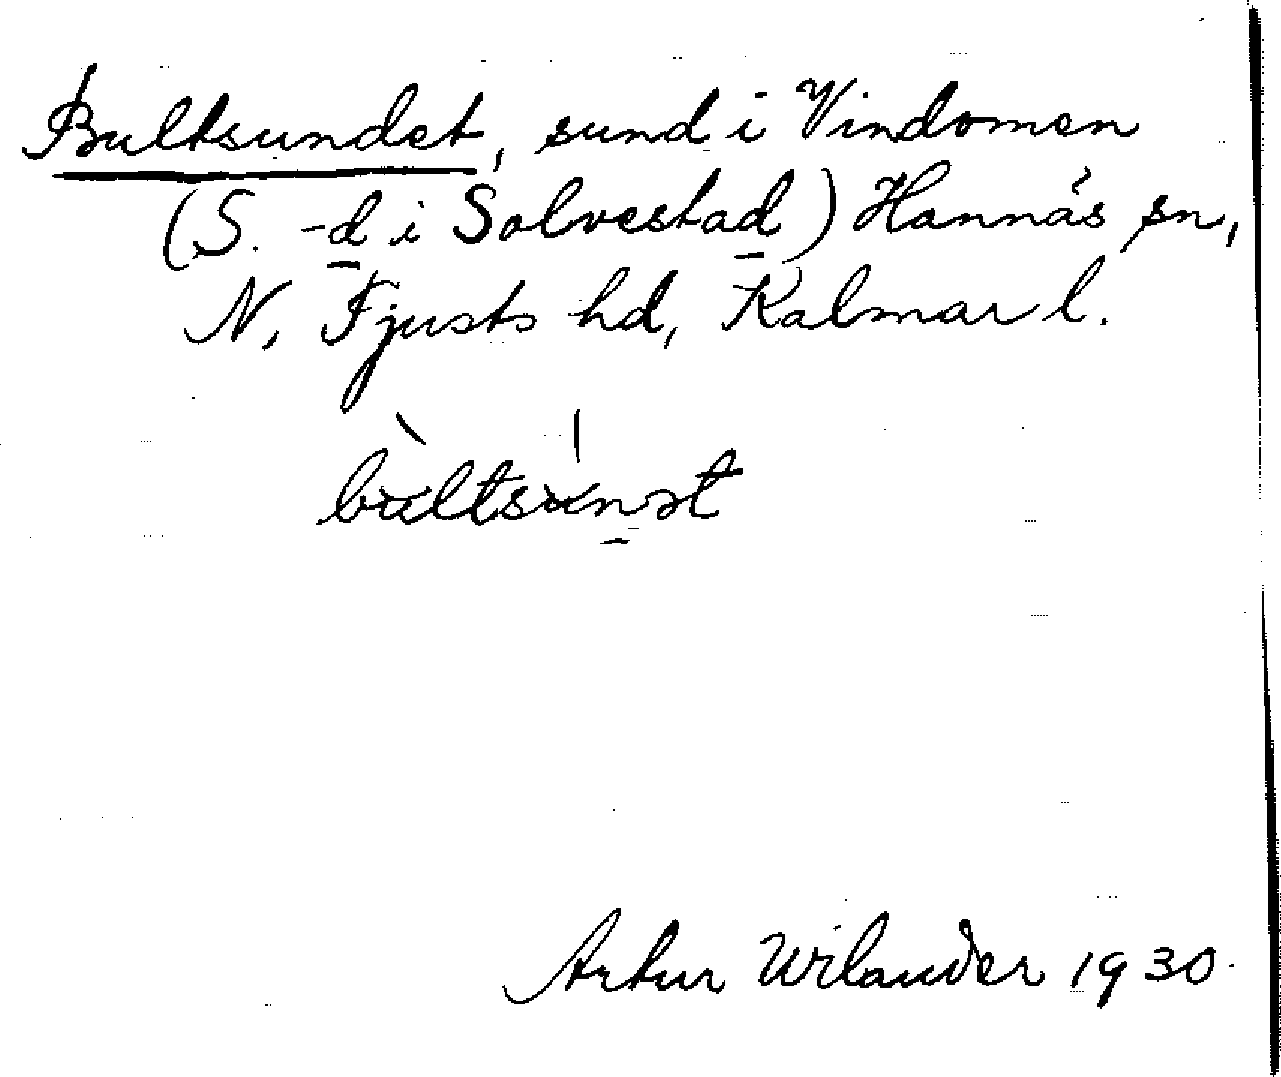 Bultsundet, sund i Vindomen
(S. -d i Solvestad) Hannäs sn,
N, Tjusts hd, Kalmar l.
bùltsùnət
Artur Wilander 1930.